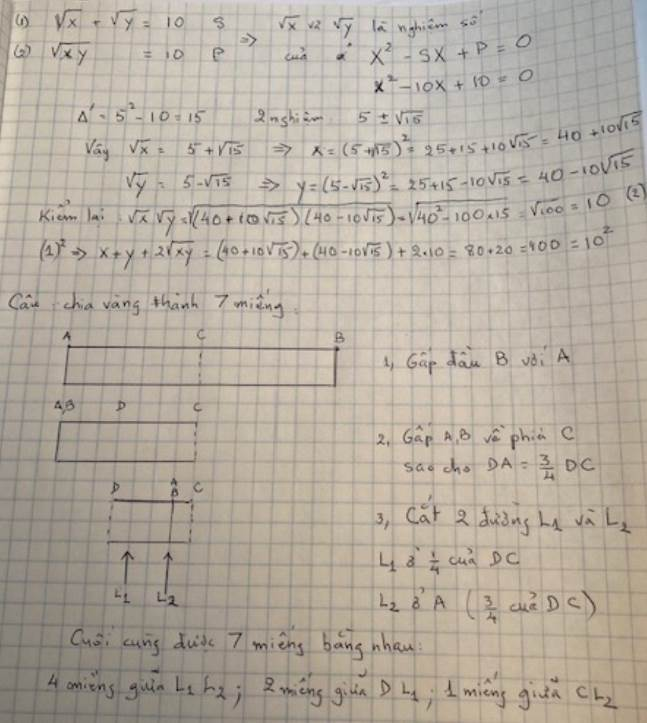 (1) √x + √y = 10 S ⇒ √x và √y là nghiệm số
(2) √xy = 10 P của X² - SX + P = 0
x² - 10x + 10 = 0
Δ' = 5² - 10 = 15 2 nghiệm 5 ± √15
Vây √x = 5 + √15 ⇒ x = (5 + √15)² = 25 + 15 + 10√15 = 40 + 10√15
√y = 5 - √15 ⇒ y = (5 - √15)² = 25 + 15 - 10√15 = 40 - 10√15
Kiểm lai : √x √y = √(40 + 10√15) (40 - 10√15) = √40² - 100.15 = √100 = 10 (2)
(1)² ⇒ x + y + 2√xy = (40 + 10√15) + (40 - 10√15) + 2.10 = 80 + 20 = 100 = 10²
Câu chia vàng thành 7 miếng.
A C B
1, Gấp đầu B với A
A,B D C
2, Gấp A,B về phiá C
sao cho DA = 3/4 DC
D A B C
3, Cắt 2 đường L1 và L2
L1 ở 1/4 của DC
L1 L2
L2 ở A (3/4 của DC)
Cuối cùng được 7 miếng bằng nhau:
4 miếng giữa L1 L2 ; 2 miếng giữa D L1 ; 1 miếng giữa C L2